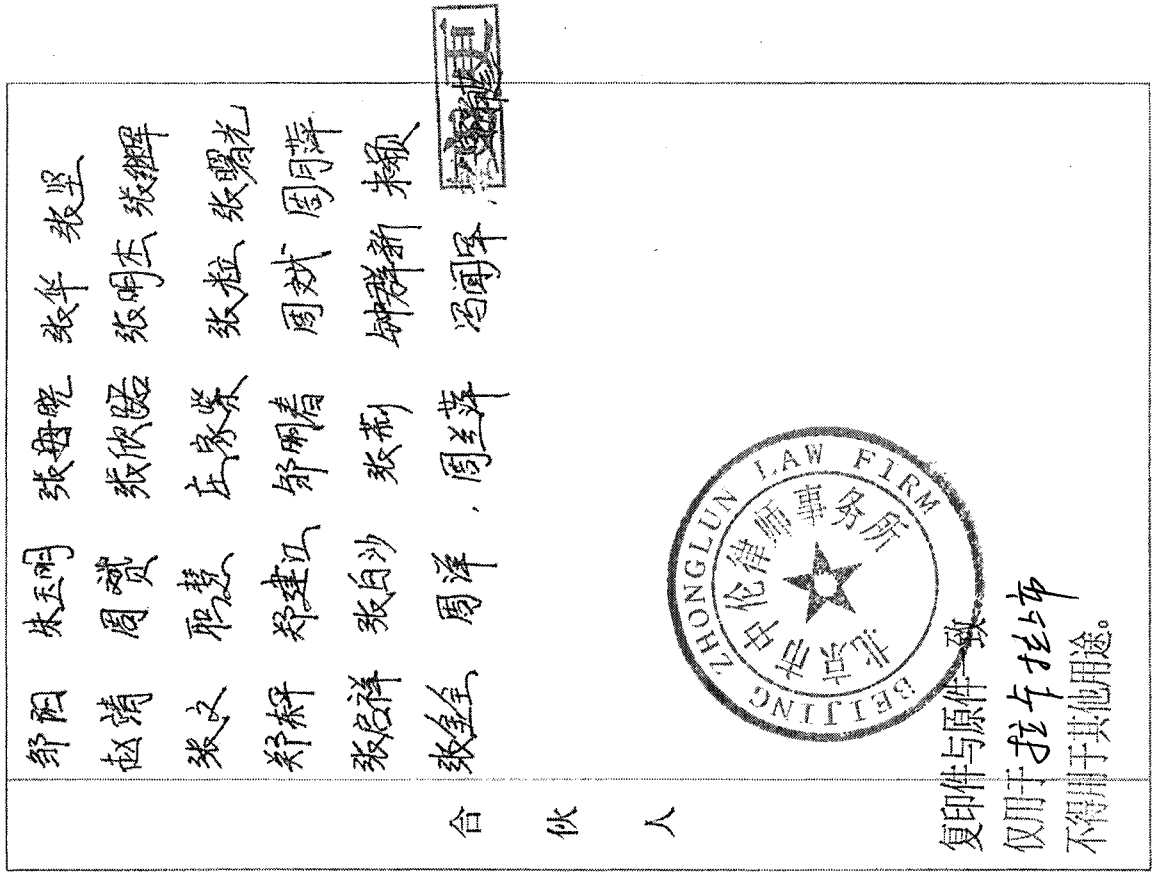 合伙人
邹阳 朱玉明 张华 张坚
赵靖 周赟 张欣陆 张明杰 张继军
张文 耿慧 庄家紫 张粒 张曙光
郑辉 郑建江 邹明春 周斌 周月萍
张启祥 张白沙 张莉 钟群新 朱颖
张金全 周洋 周兰萍 冯闻军
BEIJING ZHONGLUN LAW FIRM
北京市中伦律师事务所
复印件与原件一致
仅用于
不得用于其他用途。